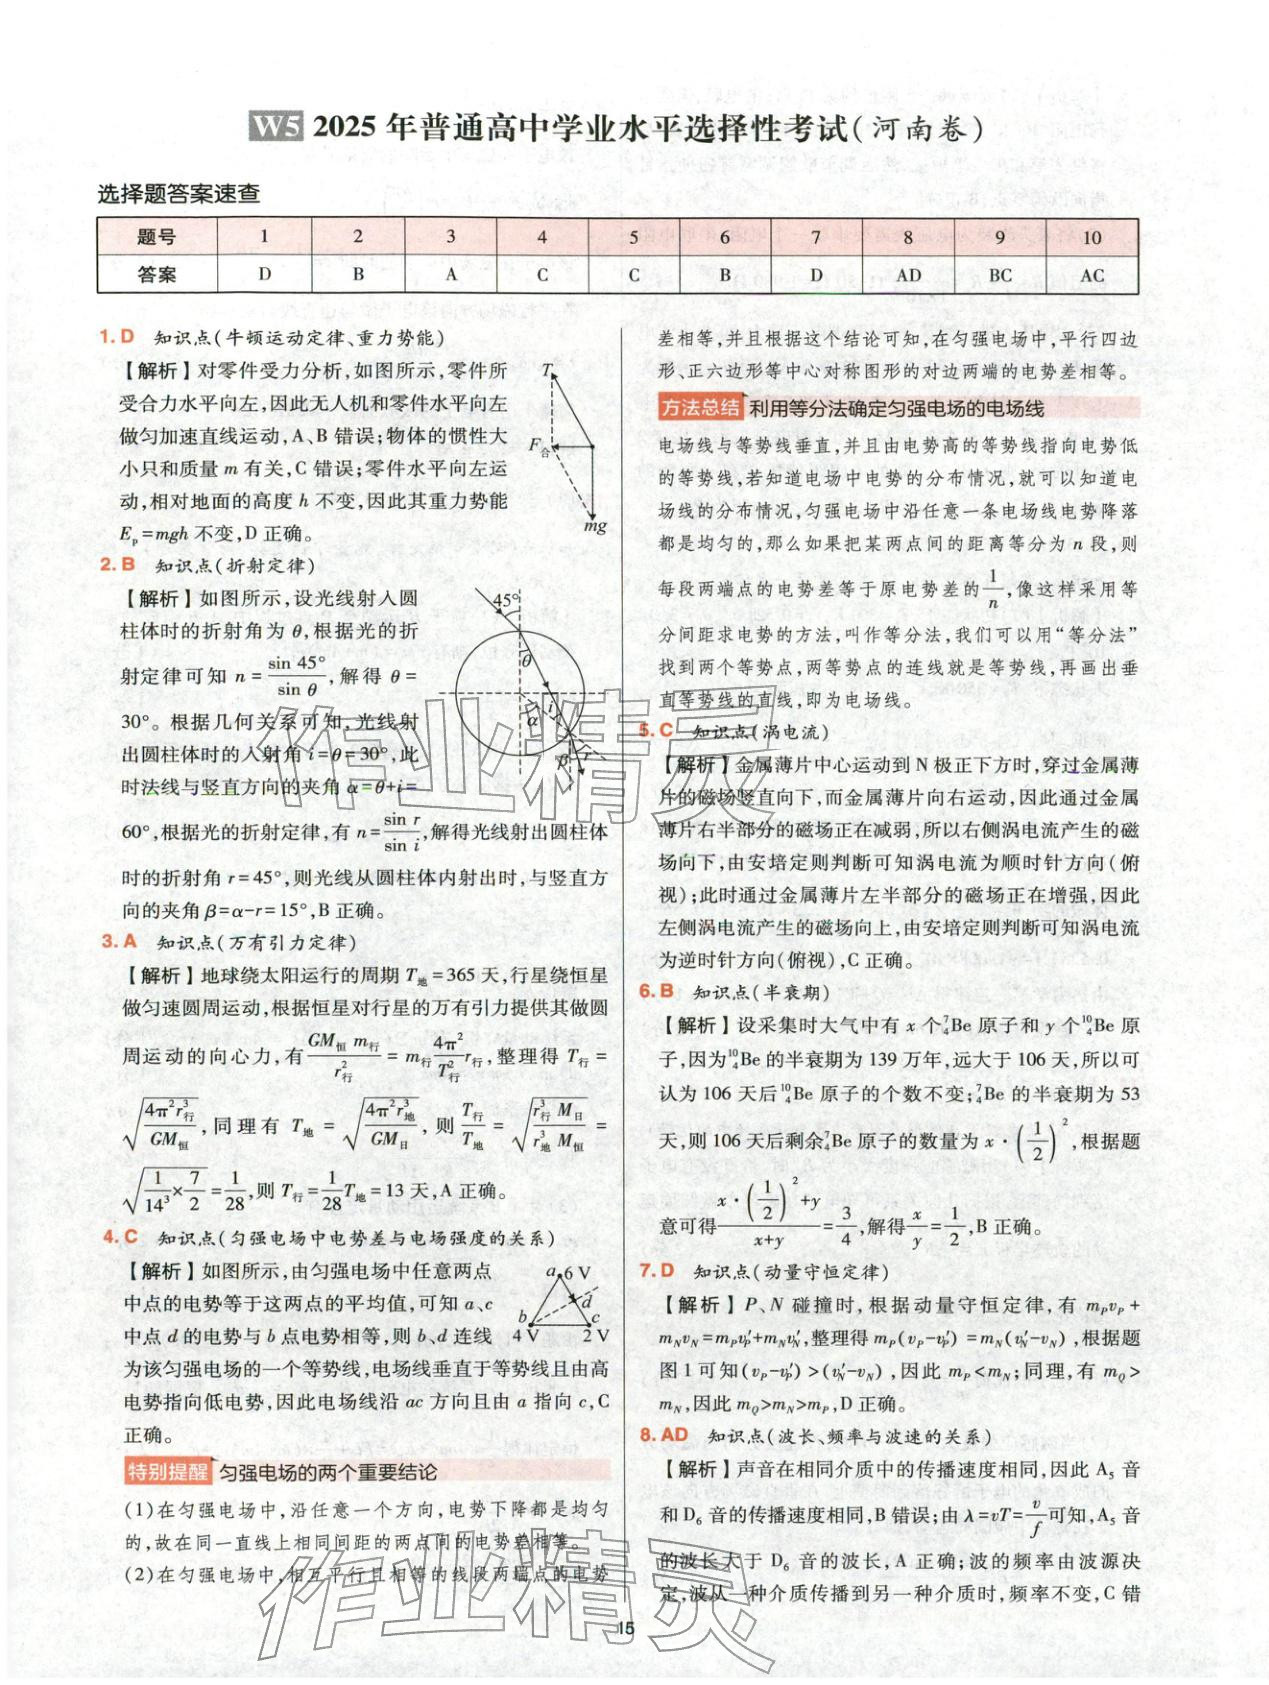 W5 2025年普通高中学业水平选择性考试(河南卷)
选择题答案速查
题号 1 2 3 4 5 6 7 8 9 10
答案 D B A C C B D AD BC AC
1. D 知识点(牛顿运动定律、重力势能)
【解析】对零件受力分析,如图所示,零件所
受合力水平向左,因此无人机和零件水平向左
做匀加速直线运动,A、B错误;物体的惯性大
小只和质量m有关,C错误;零件水平向左运
动,相对地面的高度h不变,因此其重力势能
Eₚ=mgh不变,D正确。
T
F合
mg
2. B 知识点(折射定律)
【解析】如图所示,设光线射入圆
柱体时的折射角为θ,根据光的折
射定律可知n=sin 45°/sin θ,解得θ=
30°。根据几何关系可知,光线射
出圆柱体时的入射角i=θ=30°,此
时法线与竖直方向的夹角α=θ+i=
60°,根据光的折射定律,有n=sin r/sin i,解得光线射出圆柱体
时的折射角r=45°,则光线从圆柱体内射出时,与竖直方
向的夹角β=α-r=15°,B正确。
45°
θ
α
i
β
r
3. A 知识点(万有引力定律)
【解析】地球绕太阳运行的周期T地=365天,行星绕恒星
做匀速圆周运动,根据恒星对行星的万有引力提供其做圆
周运动的向心力,有GM恒m行/r行²=m行4π²/T行²r行,整理得T行=
√(4π²r行³/GM恒),同理有T地=√(4π²r地³/GM日),则T行/T地=√(r行³M日/r地³M恒)=
√(1/14³×7/2)=1/28,则T行=1/28T地=13天,A正确。
4. C 知识点(匀强电场中电势差与电场强度的关系)
【解析】如图所示,由匀强电场中任意两点
中点的电势等于这两点的平均值,可知a、c
中点d的电势与b点电势相等,则b、d连线
为该匀强电场的一个等势线,电场线垂直于等势线且由高
电势指向低电势,因此电场线沿ac方向且由a指向c,C
正确。
a 6 V
d
b c
4 V 2 V
特别提醒 匀强电场的两个重要结论
(1)在匀强电场中,沿任意一个方向,电势下降都是均匀
的,故在同一直线上相同间距的两点间的电势差相等。
(2)在匀强电场中,相互平行且相等的线段两端点的电势
差相等,并且根据这个结论可知,在匀强电场中,平行四边
形、正六边形等中心对称图形的对边两端的电势差相等。
方法总结 利用等分法确定匀强电场的电场线
电场线与等势线垂直,并且由电势高的等势线指向电势低
的等势线,若知道电场中电势的分布情况,就可以知道电
场线的分布情况,匀强电场中沿任意一条电场线电势降落
都是均匀的,那么如果把某两点间的距离等分为n段,则
每段两端点的电势差等于原电势差的1/n,像这样采用等
分间距求电势的方法,叫作等分法,我们可以用“等分法”
找到两个等势点,两等势点的连线就是等势线,再画出垂
直等势线的直线,即为电场线。
5. C 知识点(涡电流)
【解析】金属薄片中心运动到N极正下方时,穿过金属薄
片的磁场竖直向下,而金属薄片向右运动,因此通过金属
薄片右半部分的磁场正在减弱,所以右侧涡电流产生的磁
场向下,由安培定则判断可知涡电流为顺时针方向(俯
视);此时通过金属薄片左半部分的磁场正在增强,因此
左侧涡电流产生的磁场向上,由安培定则判断可知涡电流
为逆时针方向(俯视),C正确。
6. B 知识点(半衰期)
【解析】设采集时大气中有x个⁷₄Be原子和y个¹⁰₄Be原
子,因为¹⁰₄Be的半衰期为139万年,远大于106天,所以可
认为106天后¹⁰₄Be原子的个数不变;⁷₄Be的半衰期为53
天,则106天后剩余⁷₄Be原子的数量为x·(1/2)²,根据题
意可得(x·(1/2)²+y)/(x+y)=3/4,解得x/y=1/2,B正确。
7. D 知识点(动量守恒定律)
【解析】P、N碰撞时,根据动量守恒定律,有m_Pv_P+
m_Nv_N=m_Pv'_P+m_Nv'_N,整理得m_P(v_P-v'_P)=m_N(v'_N-v_N),根据题
图1可知(v_P-v'_P)>(v'_N-v_N),因此m_P<m_N;同理,有m_Q>
m_N,因此m_Q>m_N>m_P,D正确。
8. AD 知识点(波长、频率与波速的关系)
【解析】声音在相同介质中的传播速度相同,因此A₅音
和D₆音的传播速度相同,B错误;由λ=vT=v/f可知,A₅音
的波长大于D₆音的波长,A正确;波的频率由波源决
定,波从一种介质传播到另一种介质时,频率不变,C错
15
作业精灵
作业精灵